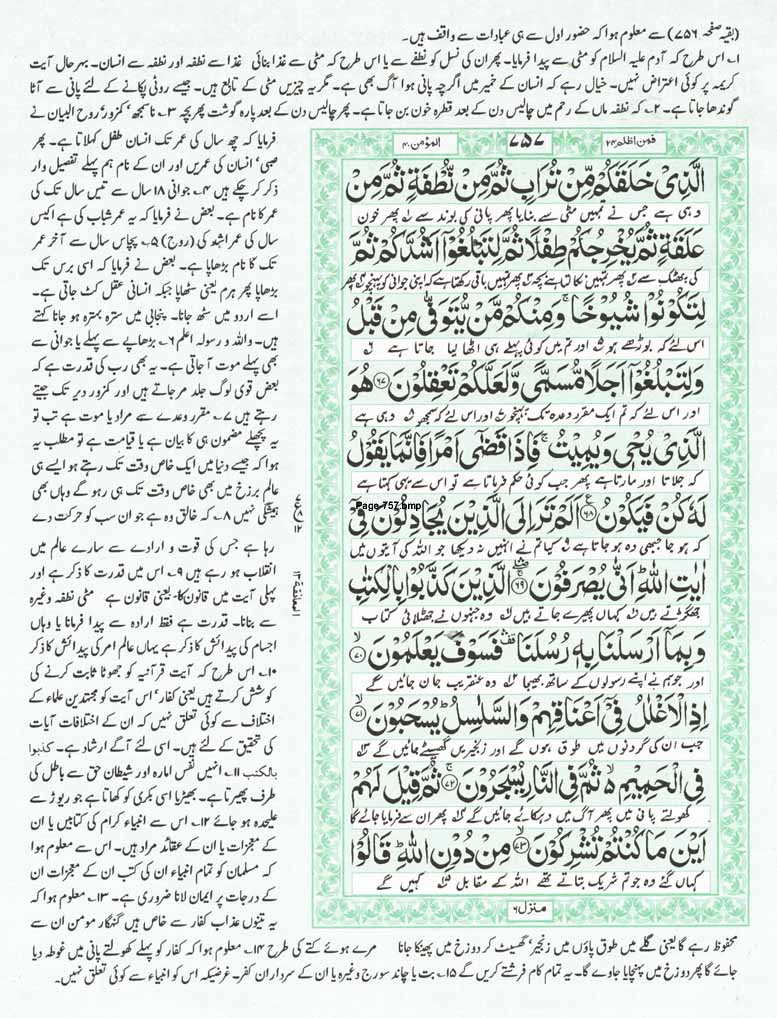 (بقیہ صفحہ ۷۵۶) سے معلوم ہوا کہ حضور اول سے ہی عبادات سے واقف ہیں۔
۱۔ اس طرح کہ آدم علیہ السلام کو مٹی سے پیدا فرمایا۔ پھر ان کی نسل کو نطفے سے یا اس طرح کہ مٹی سے غذا بنائی غذا سے نطفہ اور نطفہ سے انسان۔ بہر حال آیت
کریمہ پر کوئی اعتراض نہیں۔ خیال رہے کہ انسان کے خمیر میں اگرچہ پانی ہوا آگ بھی ہے۔ مگر یہ چیزیں مٹی کے تابع ہیں۔ جیسے روٹی پکانے کے لئے پانی سے آٹا
گوندھا جاتا ہے۔ ۲۔ کہ نطفہ ماں کے رحم میں چالیس دن کے بعد قطرہ خون بن جاتا ہے۔ پھر چالیس دن کے بعد پارہ گوشت پھر بچہ ۳۔ ناسمجھ، کمزور، روح البیان نے
فرمایا کہ چھ سال کی عمر تک انسان طفل کہلاتا ہے۔ پھر
صبی، انسان کی عمریں اور ان کے نام ہم پہلے تفصیل وار
ذکر کر چکے ہیں ۴۔ جوانی ۱۸ سال سے تیس سال تک کی
عمر کا نام ہے۔ بعض نے فرمایا کہ یہ عمر شباب کی ہے اکیس
سال کی عمر اشد کی (روح) ۵۔ پچاس سال سے آخر عمر
تک کا نام بڑھاپا ہے۔ بعض نے فرمایا کہ اسی برس تک
بڑھاپا پھر ہرم یعنی سٹھاپا جبکہ انسانی عقل گھٹ جاتی ہے۔
اسے اردو میں سٹھ جانا۔ پنجابی میں سترہ بہترہ ہو جانا کہتے
ہیں۔ واللہ و رسولہ اعلم ۶۔ بڑھاپے سے پہلے یا جوانی سے
بھی پہلے موت آ جاتی ہے۔ یہ بھی رب کی قدرت ہے کہ
بعض قوی لوگ جلد مر جاتے ہیں اور کمزور دیر تک جیتے
رہتے ہیں ۷۔ مقرر وعدے سے مراد یا موت ہے تب تو
یہ پچھلے مضمون ہی کا بیان ہے یا قیامت ہے تو مطلب یہ
ہوا کہ جیسے دنیا میں ایک خاص وقت تک رہتے ہو ایسے ہی
عالم برزخ میں بھی خاص وقت تک ہی رہو گے وہاں بھی
ہیشگی نہیں ۸۔ کہ خالق وہ ہے جو ان سب کو حرکت دے
رہا ہے جس کی قوت و ارادے سے سارے عالم میں
انقلاب ہو رہے ہیں ۹۔ اس میں قدرت کا ذکر ہے اور
پہلی آیت میں قانون کا۔ یعنی قانون ہے مٹی نطفہ وغیرہ
سے بنانا۔ قدرت ہے فقط ارادہ سے پیدا فرمانا یا وہاں
اجسام کی پیدائش کا ذکر ہے یہاں عالم امر کی پیدائش کا ذکر
۱۰۔ اس طرح کہ آیت قرآنیہ کو جھوٹا ثابت کرنے کی
کوشش کرتے ہیں یعنی کفار، اس آیت کو مجتہدین علماء کے
اختلاف سے کوئی تعلق نہیں کہ ان کے اختلافات آیات
کی تحقیق کے لئے ہیں۔ اسی لئے آگے ارشاد ہے۔ کذبوا
بالکتب ۱۱۔ انہیں نفس امارہ اور شیطان حق سے باطل کی
طرف پھیرتا ہے۔ بھیڑیا اسی بکری کو کھاتا ہے جو ریوڑ سے
علیحدہ ہو جائے ۱۲۔ اس سے انبیاء کرام کی کتابیں یا ان
کے معجزات یا ان کے عقائد مراد ہیں۔ اس سے معلوم ہوا
کہ مسلمان کو تمام انبیاء ان کی کتب ان کے معجزات ان
کے درجات پر ایمان لانا ضروری ہے۔ ۱۳۔ معلوم ہوا کہ
یہ تینوں عذاب کفار سے خاص ہیں گنہگار مومن ان سے
فمن اظلم ۲۴ ۷۵۷ المؤمن ۴۰
الَّذِیْ خَلَقَكُمْ مِّنْ تُرَابٍ ثُمَّ مِنْ نُّطْفَةٍ ثُمَّ مِنْ
وہی ہے جس نے تمہیں مٹی سے بنایا پھر پانی کی بوند سے پھر خون
عَلَقَةٍ ثُمَّ یُخْرِجُكُمْ طِفْلًا ثُمَّ لِتَبْلُغُوْۤا اَشُدَّكُمْ ثُمَّ
کی پھٹک سے پھر تمہیں نکالتا ہے بچہ پھر تمہیں باقی رکھتا ہے کہ اپنی جوانی کو پہنچو پھر
لِتَكُوْنُوْا شُیُوْخًا ۚ وَمِنْكُمْ مَّنْ یُّتَوَفّٰی مِنْ قَبْلُ
اس لئے کہ بوڑھے ہو اور تم میں کوئی پہلے ہی اٹھا لیا جاتا ہے
وَلِتَبْلُغُوْۤا اَجَلًا مُّسَمًّی وَّلَعَلَّكُمْ تَعْقِلُوْنَ ﴿۶۷﴾ هُوَ
اور اس لئے کہ تم ایک مقرر وعدہ تک پہنچو اور اس لئے کہ سمجھو وہی ہے
الَّذِیْ یُحْیٖ وَیُمِیْتُ ۚ فَاِذَا قَضٰۤی اَمْرًا فَاِنَّمَا یَقُوْلُ
کہ جلاتا اور مارتا ہے پھر جب کوئی حکم فرماتا ہے تو اس سے یہی کہتا ہے
لَهٗ كُنْ فَیَكُوْنُ ﴿۶۸﴾ اَلَمْ تَرَ اِلَی الَّذِیْنَ یُجَادِلُوْنَ فِیْۤ
Page 757.bmp
کہ ہو جا جبھی وہ ہو جاتا ہے کیا تم نے انہیں نہ دیکھا جو اللہ کی آیتوں میں
اٰیٰتِ اللّٰهِ ؕ اَنّٰی یُصْرَفُوْنَ ﴿۶۹﴾ الَّذِیْنَ كَذَّبُوْا بِالْكِتٰبِ
جھگڑتے ہیں کہاں پھیرے جاتے ہیں وہ جنہوں نے جھٹلائی کتاب
وَبِمَاۤ اَرْسَلْنَا بِهٖ رُسُلَنَا ۛ فَسَوْفَ یَعْلَمُوْنَ ﴿۷۰﴾
اور جو ہم نے اپنے رسولوں کے ساتھ بھیجا وہ عنقریب جان جائیں گے
اِذِ الْاَغْلٰلُ فِیْۤ اَعْنَاقِهِمْ وَالسَّلٰسِلُ ؕ یُسْحَبُوْنَ ﴿۷۱﴾
جب ان کی گردنوں میں طوق ہوں گے اور زنجیریں گھسیٹے جائیں گے
فِی الْحَمِیْمِ ۙ۬ ثُمَّ فِی النَّارِ یُسْجَرُوْنَ ﴿۷۲﴾ ثُمَّ قِیْلَ لَهُمْ
کھولتے پانی میں پھر آگ میں دہکائے جائیں گے پھر ان سے فرمایا جائے گا
اَیْنَ مَا كُنْتُمْ تُشْرِكُوْنَ ﴿۷۳﴾ مِنْ دُوْنِ اللّٰهِ ؕ قَالُوْا
کہاں گئے وہ جو تم شریک بتاتے تھے اللہ کے مقابل کہیں گے
منزل ۶
محفوظ رہے گا یعنی گلے میں طوق پاؤں میں زنجیر، گھسیٹ کر دوزخ میں پھینکا جانا مرے ہوئے کتے کی طرح ۱۴۔ معلوم ہوا کہ کفار کو پہلے کھولتے پانی میں غوطہ دیا
جائے گا پھر دوزخ میں پہنچایا جاوے گا۔ یہ تمام کام فرشتے کریں گے ۱۵۔ بت یا چاند سورج وغیرہ یا ان کے سرداران کفر۔ غرضیکہ اس کو انبیاء سے کوئی تعلق نہیں۔